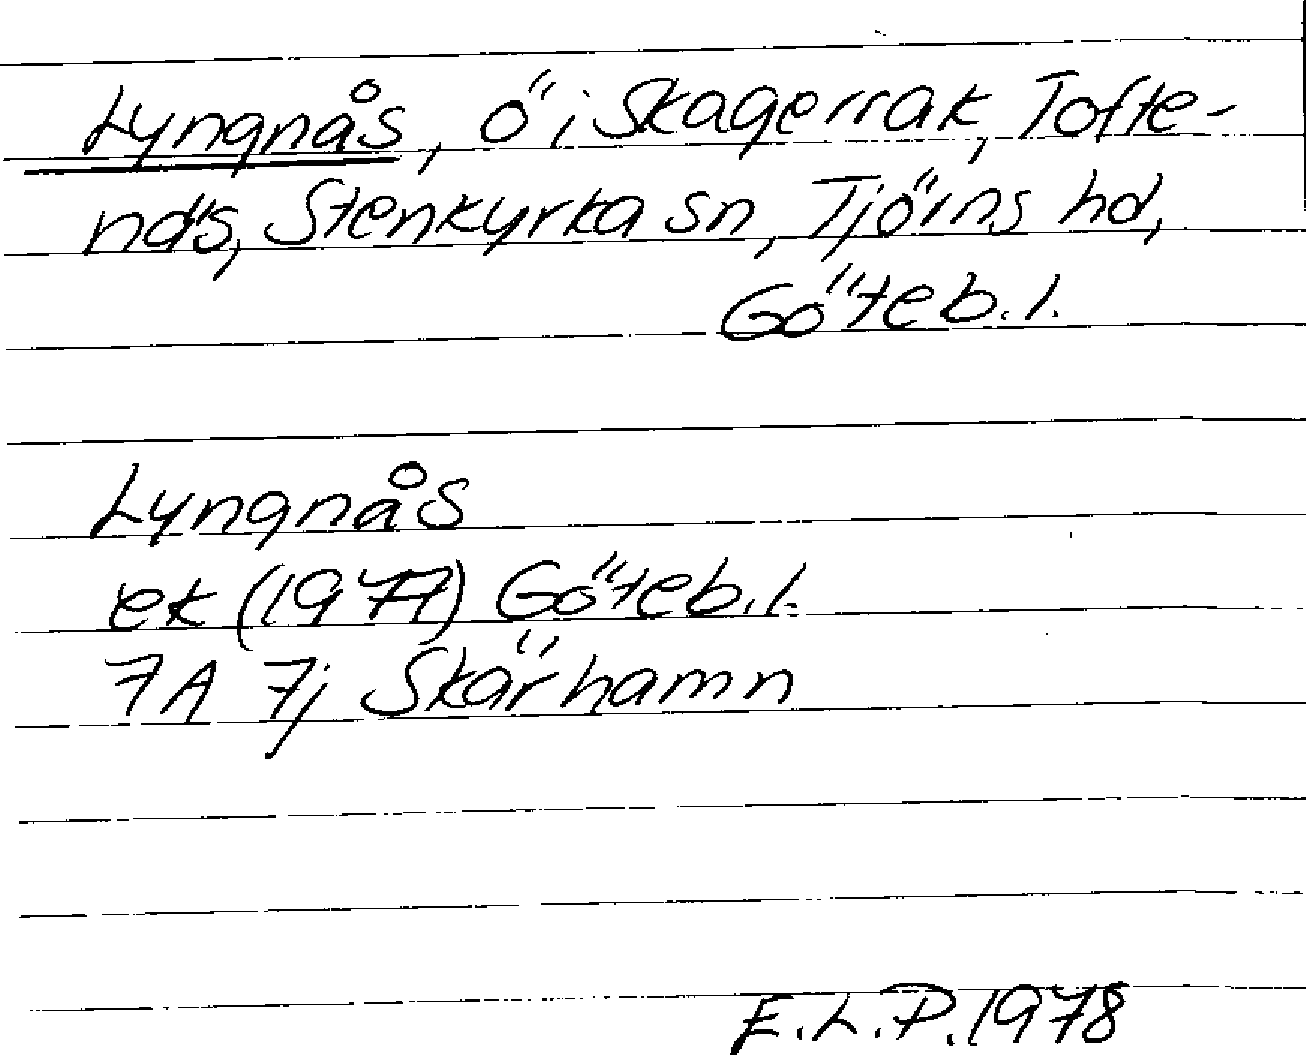 Lyngnås, ö i Skagerrak, Tofte-
näs, Stenkyrka sn, Tjörns hd,
Göteb. l.
Lyngnås
ek (1977) Göteb. l.
7A 7j Skärhamn
E.L.P. 1978